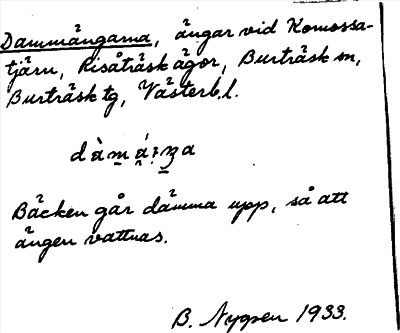 Dammängarna, ängar vid Komossa-
tjärn, Risåträsk ägor, Burträsk sn,
Burträsk tg, Västerb. l.
Bäcken går dämma upp, så att
ängen vattnas.
B. Nygren 1933.